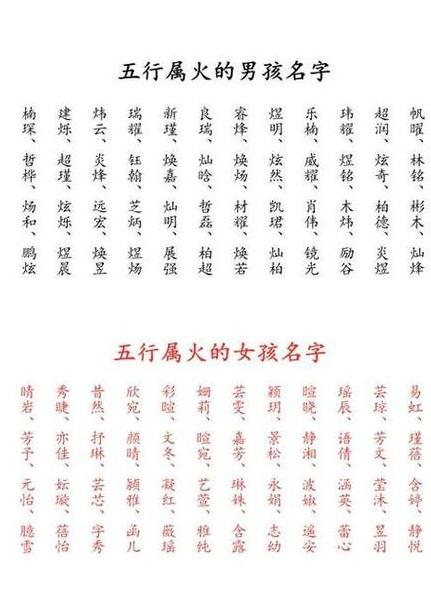 五行属火的男孩名字
帆曜、林铭、彬木、灿烽
超润、炫奇、柏德、炎煜
玮耀、煜铭、木炜、励谷
乐楠、威耀、肖伟、镜光
煜明、炫然、凯珺、灿柏
睿烽、焕炀、材耀、焕若
良瑞、灿晗、哲磊、柏超
新瑾、焕嘉、灿明、展强
瑞耀、钰翰、芝炳、煜炀
炜云、炎烽、远宏、焕昱
建烁、超瑾、炫烁、煜晨
楠琛、哲桦、炀和、鹏炫
五行属火的女孩名字
易虹、瑾蓓、含婷、静悦
芸琼、芳文、莹沐、昱羽
瑶辰、语倩、涵英、蕾心
暄晓、静湘、遥安
颖玥、景松、永娟、志幼
芸雯、嘉芳、琳姝、含露
姗莉、暄宛、艺萱、雅纯
彩暄、文冬、凝红、薇瑶
欣宛、颜晴、颖雅、函儿
昔然、抒琳、芸芯、字秀
秀睫、亦佳、妘璇、蓓怡
晴岩、芳予、元怡、臆雪